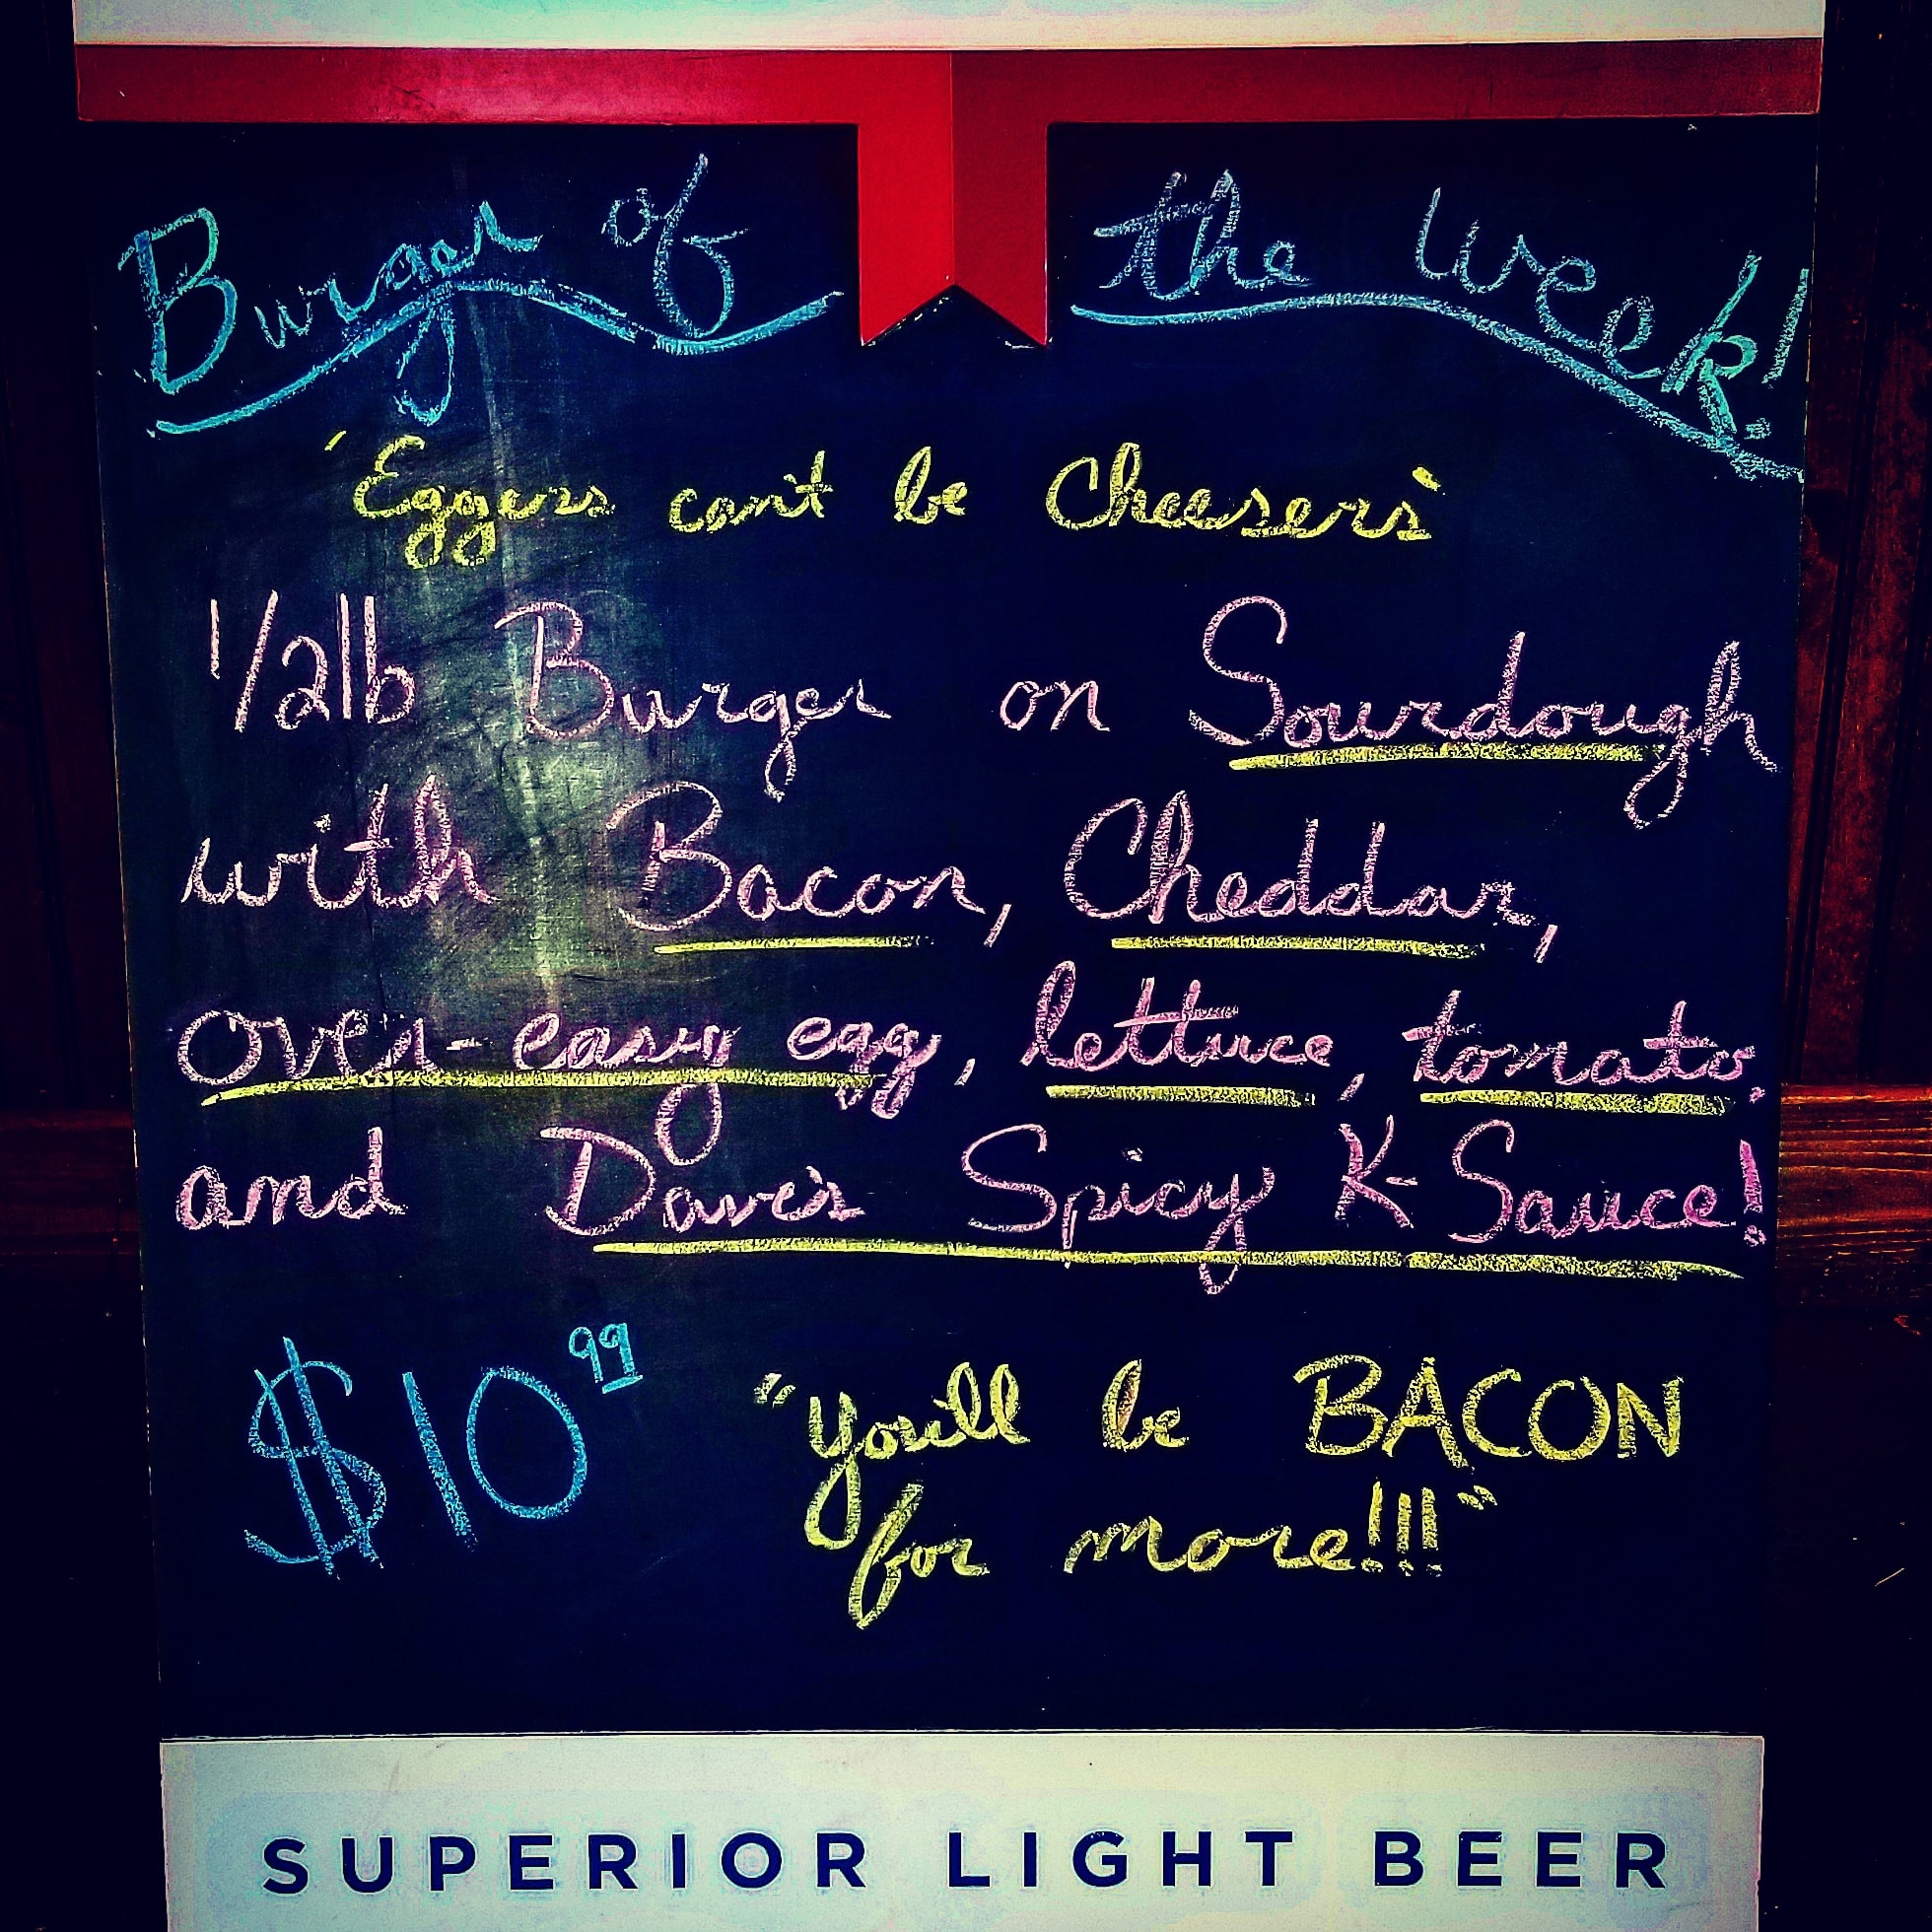 Burger of the Week!
"Eggers can't be Cheesers"
1/2lb Burger on Sourdough
with Bacon, Cheddar,
over-easy egg, lettuce, tomato,
and Dave's Spicy K-Sauce!
$10 99
"You'll be BACON
for more!!!"
SUPERIOR LIGHT BEER